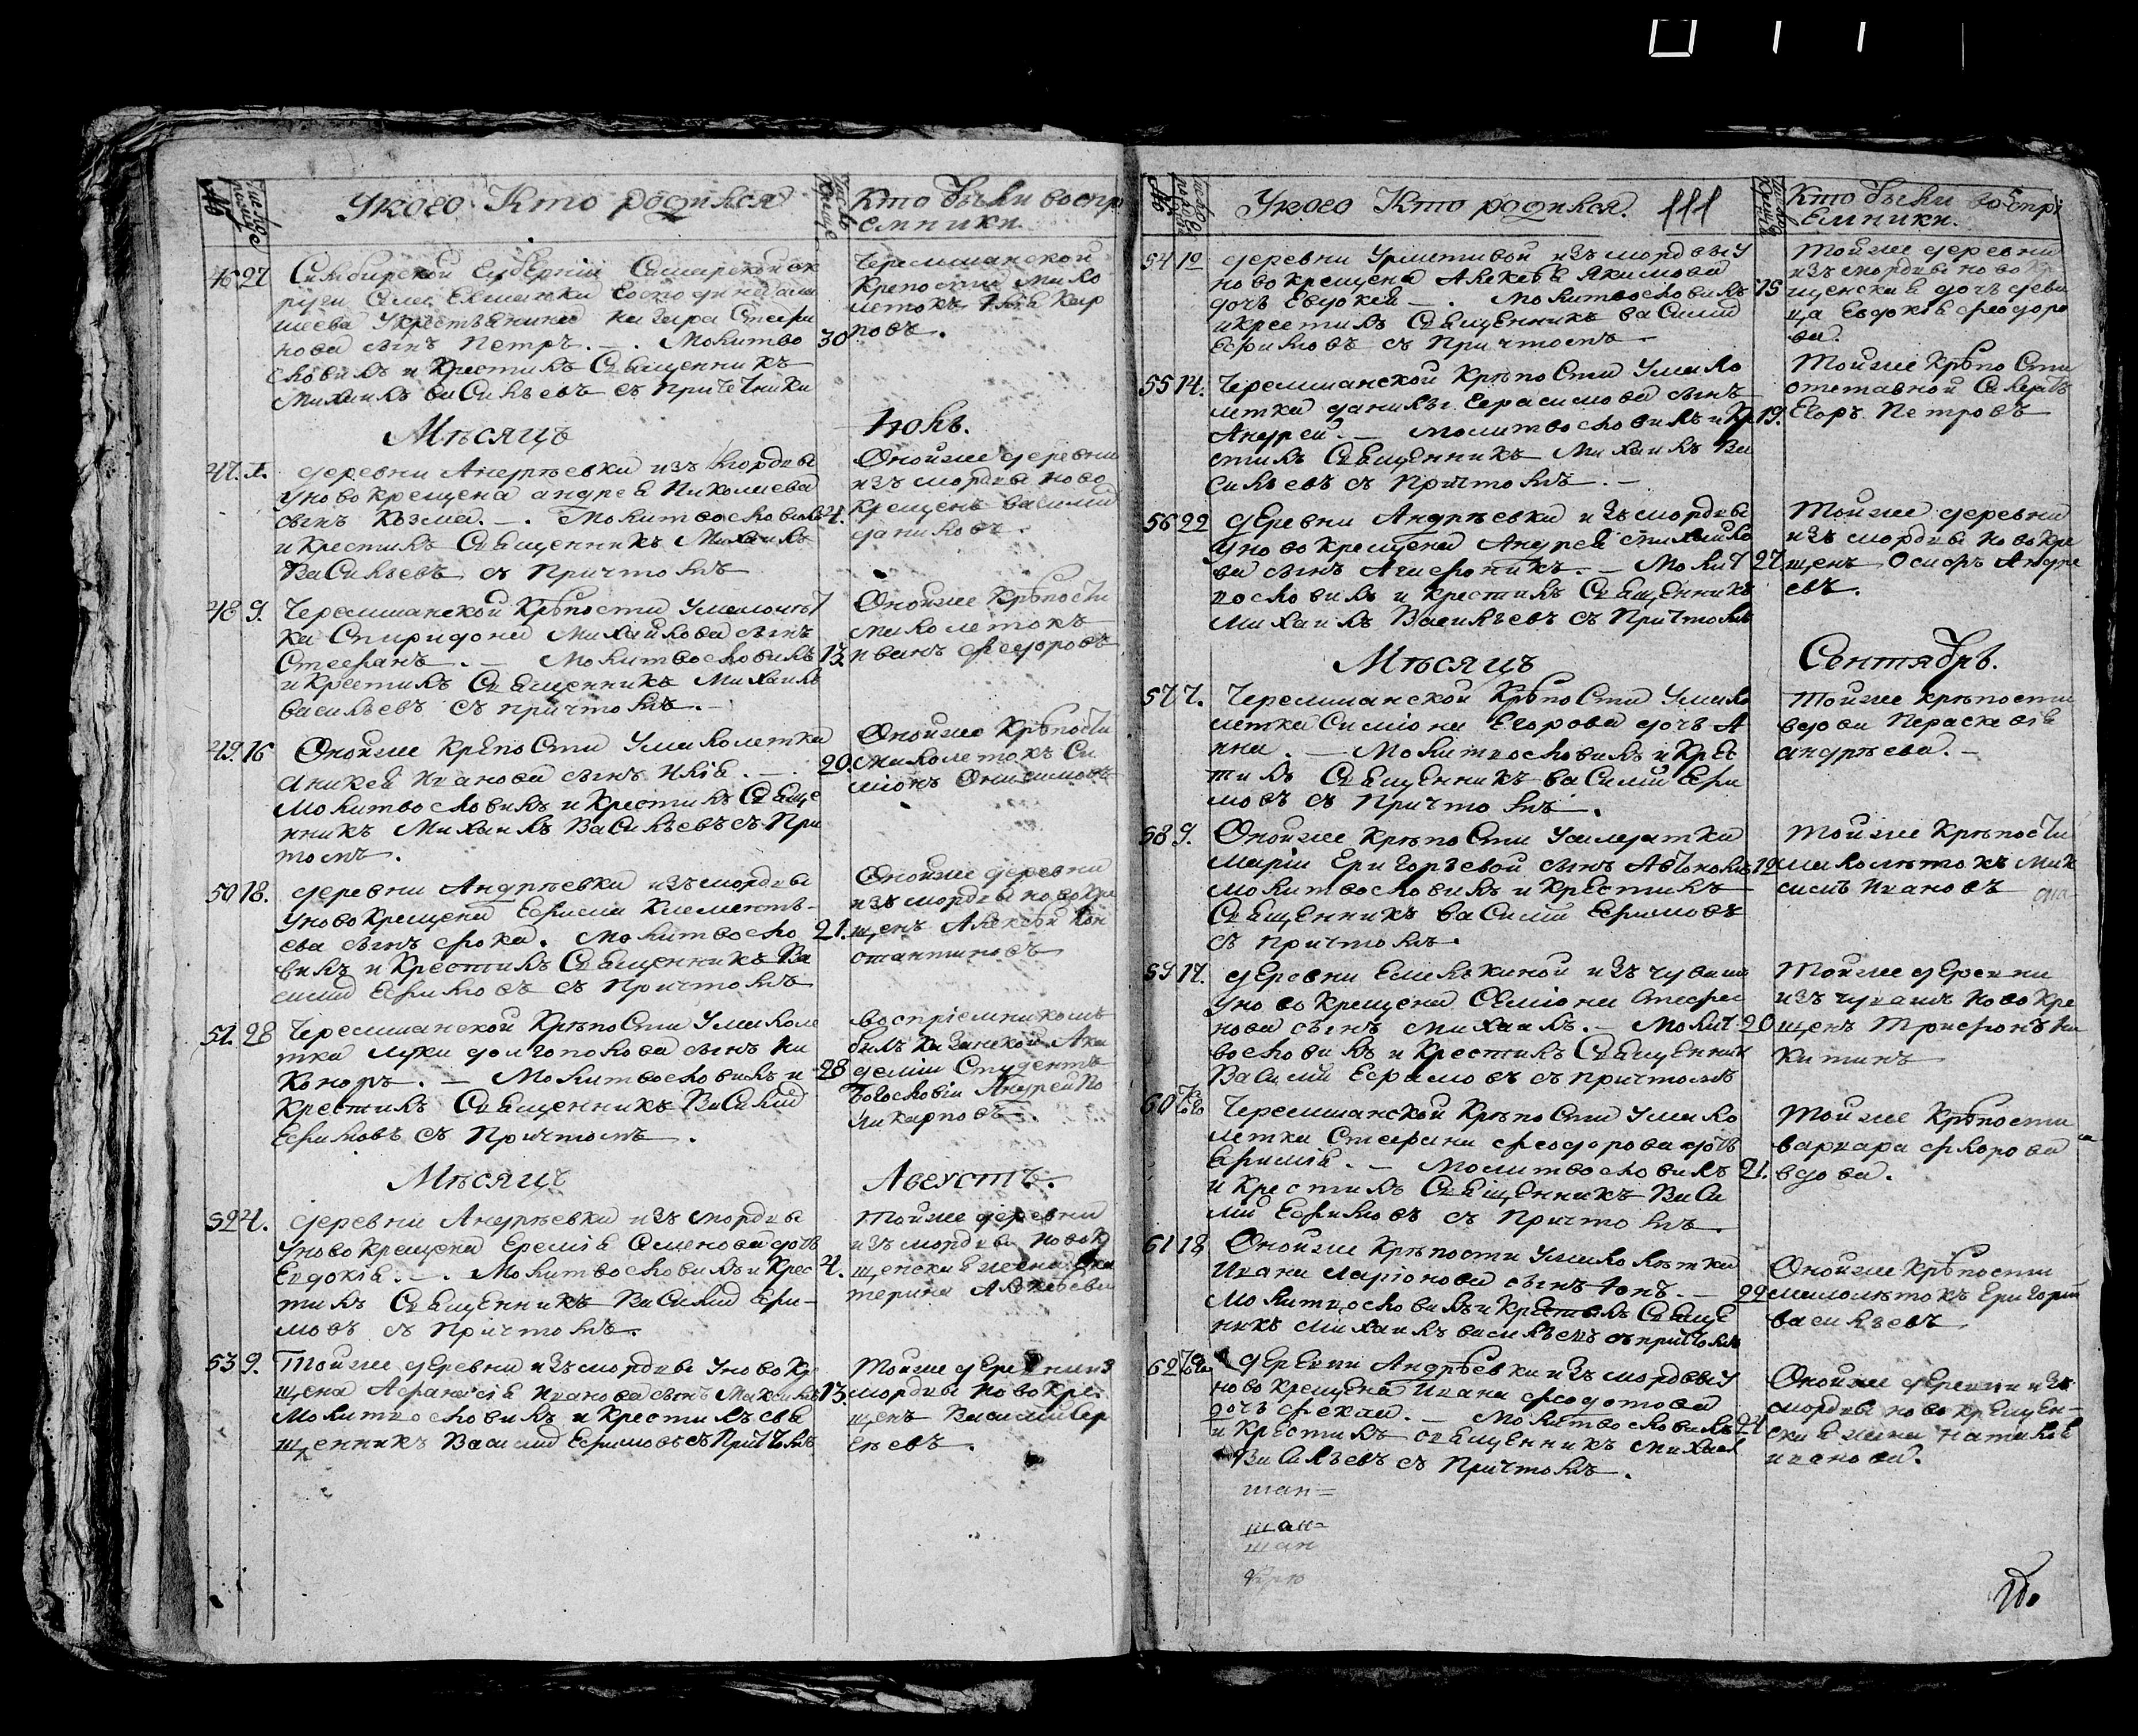 №
Число рожде
У кого Кто родился
Число Креще
Кто были воспри
емники
46 27 Симбирской Губерніи Самарской ок
руги Села Екманки Господина
шева у крестьянина Назара Стефа
нова сынъ Петръ. — . Молитво 30
словилъ и Крестилъ Священникъ
Михаилъ Васильевъ съ Причетники
Черемшанской
Крепости мало
летокъ Илiя Кар
повъ.
Мѣсяцъ
Іюль.
47. 1. деревни Андрѣевки изъ мордвы
у новокрещена Андрея Николаева
сынъ Козма. — . Молитвословилъ 4.
и Крестилъ Священникъ Михаилъ
Васильевъ съ Причтомъ
Оной же деревни
изъ мордвы ново
крещенъ Василий
Даниловъ
48 9. Черемшанской Крѣпости у малолѣт
ка Спиридона Михайлова сынъ
Стефанъ. — Молитвословилъ 13.
и Крестилъ Священникъ Михаилъ
Васильевъ съ причтомъ. —
Оной же Крѣпости
малолетокъ
Иванъ Федоровъ
49. 16 Оной же Крепости у малолетка
Аникея Иванова сынъ Илiя. — . 20.
Молитвословилъ и Крестилъ Свяще
нникъ Михаилъ Васильевъ съ При
томъ.
Оной же Крѣпости
малолетокъ Си
міонъ Онисимовъ
50 18. деревни Андрѣевки изъ мордвы
у новокрещена Ефима Клементь-
ева сынъ Фока. Молитвосло 21.
вилъ и Крестилъ Священникъ Ва
силий Ефимовъ съ Причтомъ
Оной же деревни
изъ мордвы новокре
щенъ Алексѣй Кон
стантиновъ
51. 28 Черемшанской Крѣпости у малоле
тка Луки Долгополова сынъ Ни
каноръ. — Молитвословилъ и 28
Крестилъ Священникъ Василий
Ефимовъ съ Причтомъ.
воспріемникомъ
былъ Казанской Ака
демии Студентъ
Богословіи Андрей По
ликарповъ.
Мѣсяцъ
Августъ.
52 4. деревни Андрѣевки изъ мордвы
у новокрещена Еремія Семенова дочь
Евдокія. — . Молитвословилъ и Крес 4.
тилъ Священникъ Василий Ефи-
мовъ съ Причтомъ.
Той же деревни
изъ мордвы новокр
щенская жена Ека
терина Алексѣева
53 9. Той же деревни изъ мордвы у новокр
щена Афанасія Иванова сынъ Михаилъ 13.
Молитвословилъ и Крестилъ Свя
щенникъ Василий Ефимовъ съ Причтомъ
Той же деревни из
мордвы новокре
щенъ Василий Сер
геевъ.
№
Число рожде
У кого Кто родился. 111
Число Креще
Кто были воспрі
емники.
54 10 деревни Урметивой изъ мордвы у
новокрещена Алексѣя Якимова
дочь Евдокея — . Молитвословилъ 15
и крестилъ Священникъ Василий
Ефимовъ съ Причтомъ —
Той же деревни
изъ мордвы новокр
щенская дочь деви
ца Евдокія Феодоро
ва.
55 14. Черемшанской Крѣпости у мало
летка Данилы Герасимова сынъ
Андрей. — Молитвословилъ и Кр 19.
стилъ Священникъ Михаилъ Ва
сильевъ съ Причтомъ. —
Той же Крѣпости
отставной Солдатъ
Егоръ Петровъ
56 22 деревни Андрѣевки изъ мордвы
у новокрещена Андрея Михайло
ва сынъ Агафоникъ. — Молит 27.
вословилъ и Крестилъ Священникъ
Михаилъ Васильевъ съ Причтомъ
Той же деревни
изъ мордвы новокре
щенъ Осипъ Андре
евъ.
Мѣсяцъ
Сентябрь.
57 7. Черемшанской Крѣпости у мало
летка Симіона Егорова дочь А
нна. — Молитвословилъ и Крес
тилъ Священникъ Василий Ефи
мовъ съ Причтомъ.
Той же крѣпости
вдова Параскавія
Андрѣева. —
58 9. Оной же Крѣпости у солдатки
Маріи Григорьевой сынъ Автономъ 12
Молитвословилъ и Крестилъ
Священникъ Василий Ефимовъ
съ Причтомъ.
Той же Крѣпости
малолѣтокъ Мак
симъ Ивановъ
59 17. деревни Емелькиной изъ чувашъ
у новокрещена Семіона Стефа
нова сынъ Михаилъ. — Молит 20
вословилъ и Крестилъ Священникъ
Василий Ефимовъ съ причтомъ
Той же деревни
изъ чувашъ новокре
щенъ Трифонъ Ни
китинъ
60 Черемшанской Крѣпости у мало
летка Стефана Феодорова дочь
Ефимія. — Молитвословилъ 21.
и Крестилъ Священникъ Васи
лий Ефимовъ съ Причтомъ.
Той же Крѣпости
Варвара Флорова
вдова.
61 18 Оной же Крѣпости у малолѣтка
Ивана Ларіонова сынъ Іонъ. — 22
Молитвословилъ и Крестилъ Свяще
никъ Михаилъ Васильевъ съ причтомъ
Оной же Крѣпости
малолѣтокъ Григорий
Васильевъ
62 деревни Андрѣевки изъ мордвы у
новокрещена Ивана Федотова
дочь Фекла. — Молитвословилъ 24
и Крестилъ Священникъ Михаил
Васильевъ съ Причтомъ.
Оной же деревни изъ
мордвы новокрещен-
ская жена Наталія
Иванова.
шан=
шан=
шан